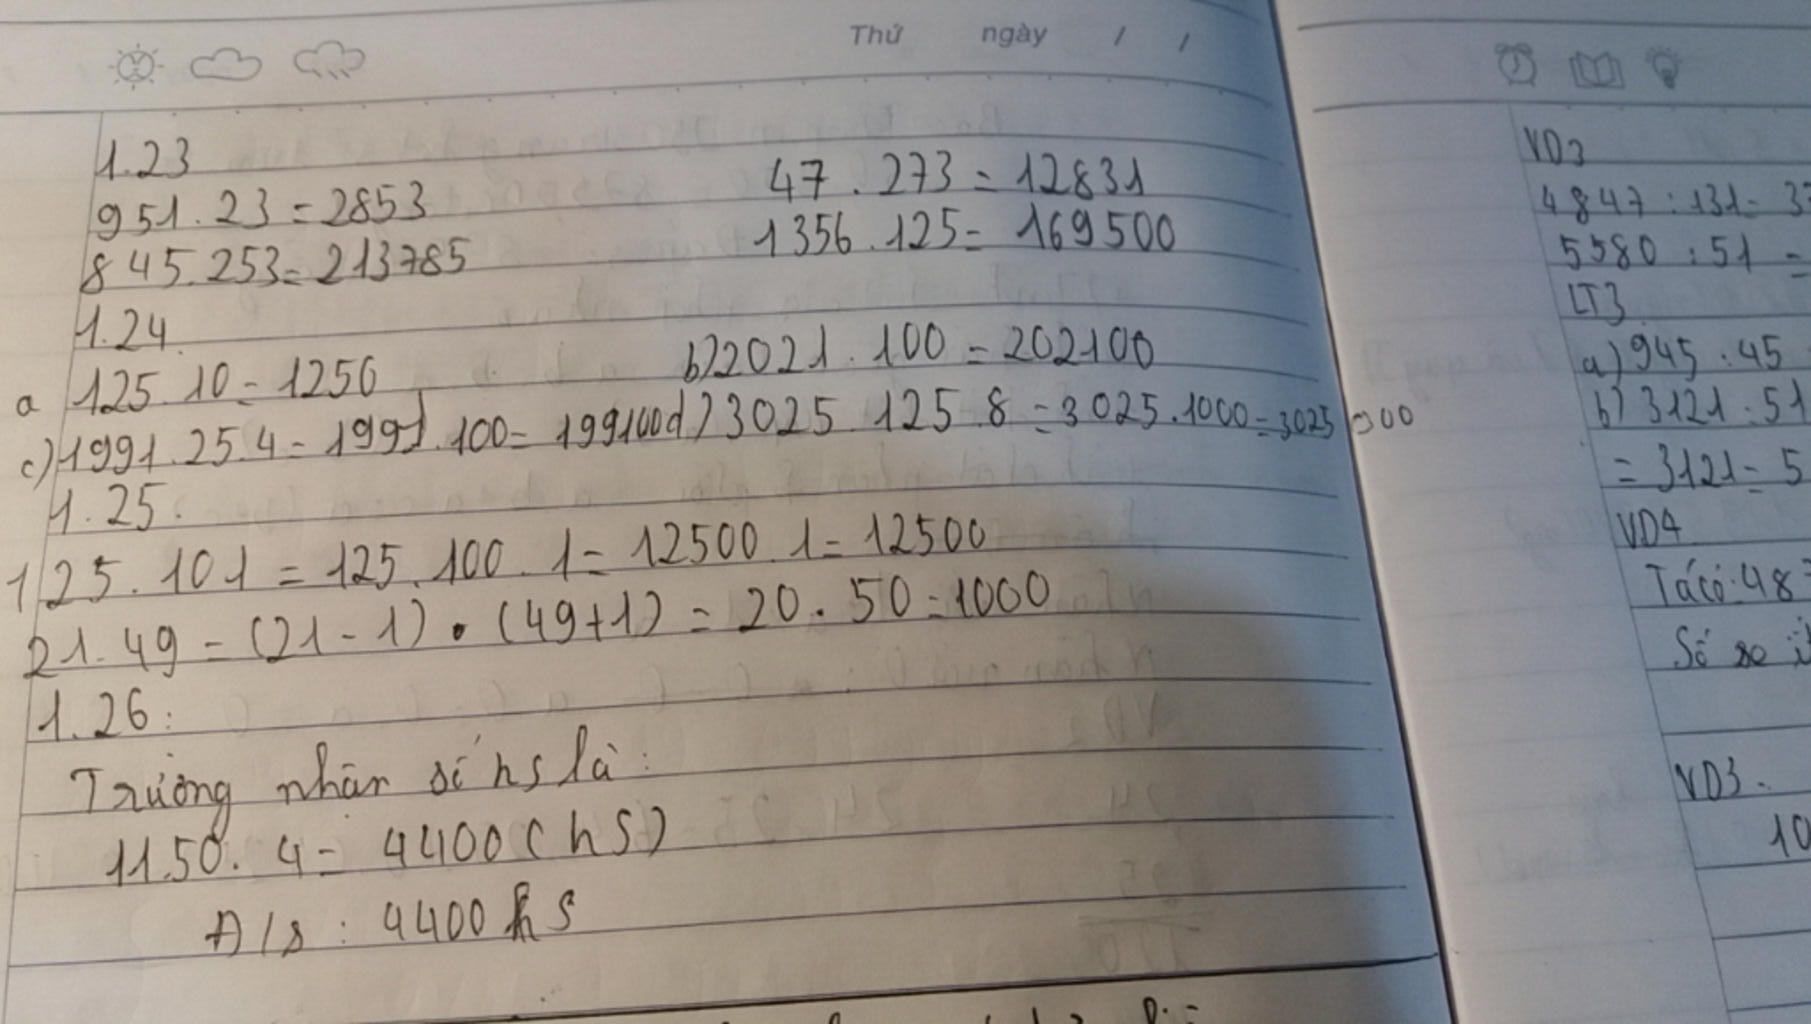 Thứ ngày / /
1.23
951.23=2853
47.273=12831
845.253=213785
1356.125=169500
1.24
a 125.10=1250
b)2021.100=202100
c)1991.25.4=1991.100=199100
d)3025.125.8=3025.1000=3025000
1.25.
125.101=125.100.1=12500.1=12500
21.49=(21-1).(49+1)=20.50=1000
1.26:
Trường nhân số hs là:
11.50.4=4400(hS)
Đ/s: 4400 hs
VD3
4847:131=37
5580:51=
LT3
a)945:45
b)3121:51
=3121=5
VD4
Ta có:48
Số xe ít
VD3.
10